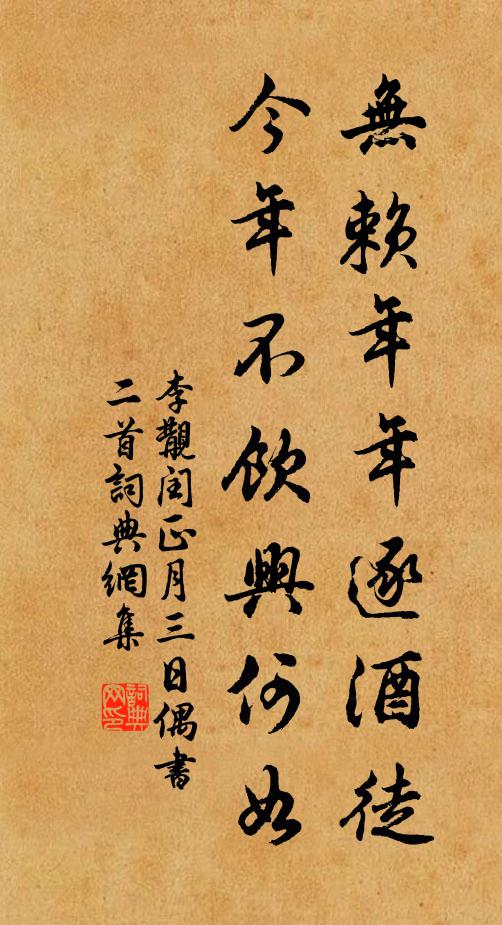 無賴年年逐酒徒
今年不飲興何如
李覯閏正月三日偶書
二首詞典網集
詞典
网印